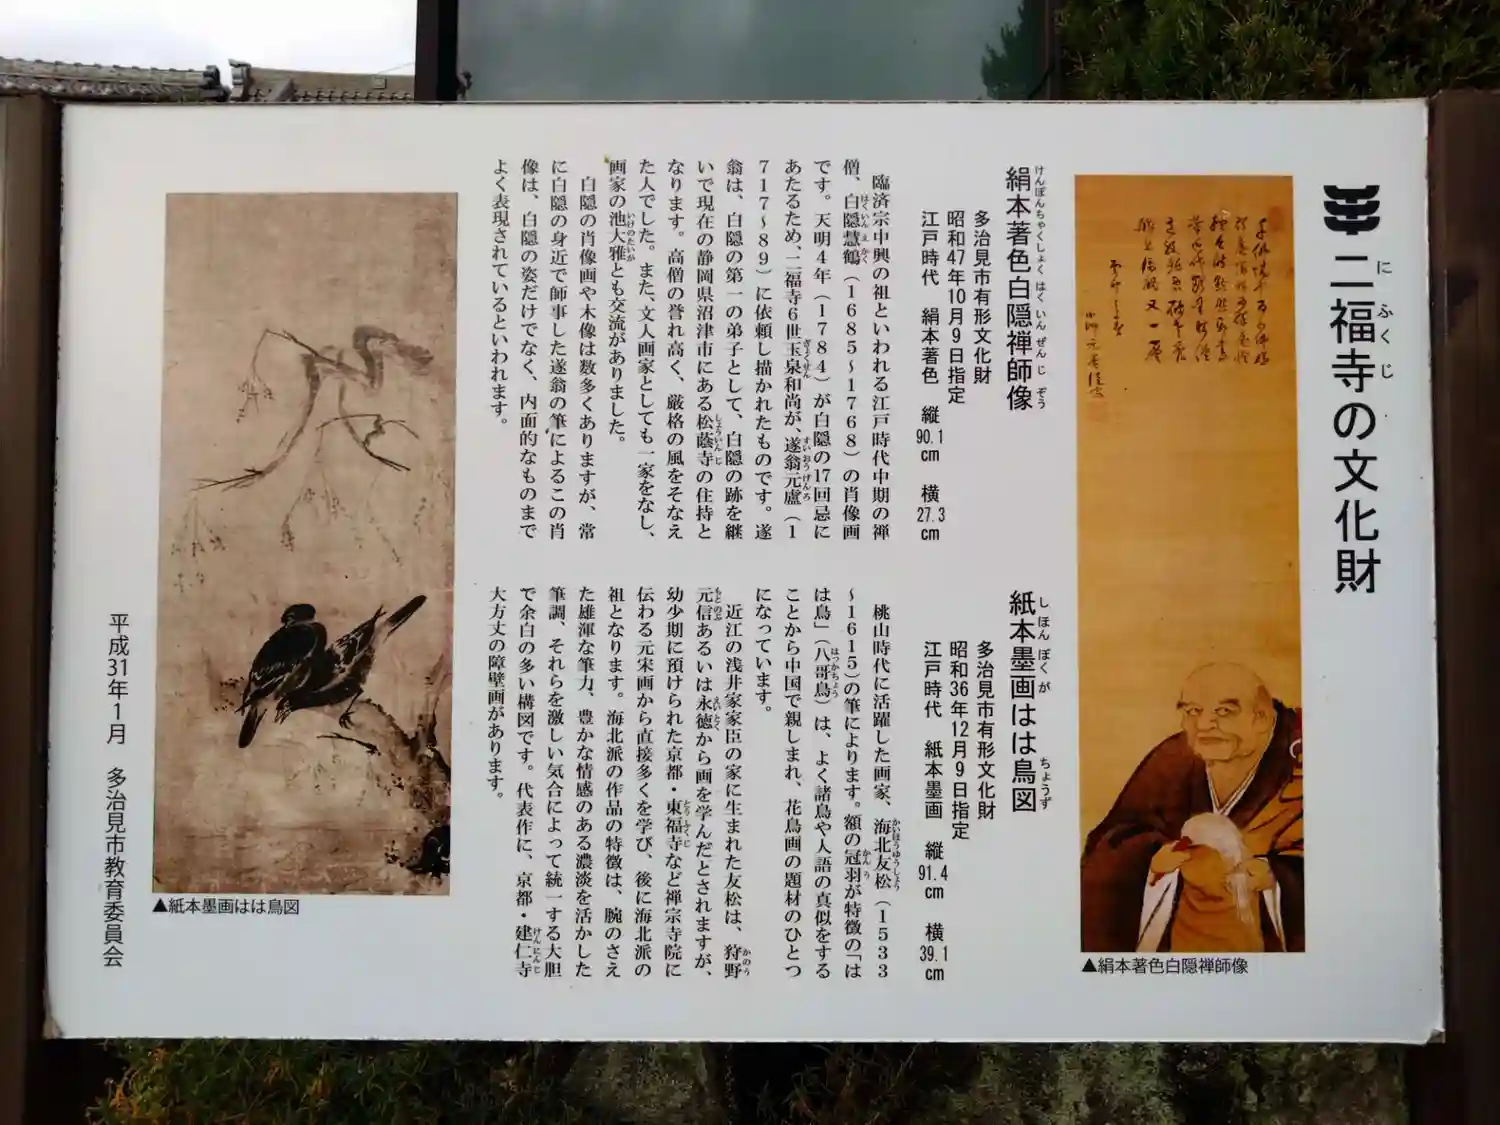 二福寺の文化財
にふくじ
絹本著色白隠禅師像
けんぽんちゃくしょくはくいんぜんじぞう
多治見市有形文化財
昭和47年10月9日指定
江戸時代 絹本著色 縦90.1cm 横27.3cm
臨済宗中興の祖といわれる江戸時代中期の禅
僧、白隠慧鶴（1685～1768）の肖像画
はくいんえかく
です。天明4年（1784）が白隠の17回忌に
あたるため、二福寺6世玉泉和尚が、遂翁元盧（1
ぎょくせん
すいおうげんろ
717～89）に依頼し描かれたものです。遂
翁は、白隠の第一の弟子として、白隠の跡を継
いで現在の静岡県沼津市にある松蔭寺の住持と
しょういんじ
なります。高僧の誉れ高く、厳格の風をそなえ
た人でした。また、文人画家としても一家をなし、
画家の池大雅とも交流がありました。
いけのたいが
白隠の肖像画や木像は数多くありますが、常
に白隠の身近で師事した遂翁の筆によるこの肖
像は、白隠の姿だけでなく、内面的なものまで
よく表現されているといわれます。
紙本墨画はは鳥図
しほんぼくが
ちょうず
多治見市有形文化財
昭和36年12月9日指定
江戸時代 紙本墨画 縦91.4cm 横39.1cm
桃山時代に活躍した画家、海北友松（1533
かいほうゆうしょう
～1615）の筆によります。額の冠羽が特徴の「は
かんう
は鳥」（八哥鳥）は、よく諸鳥や人語の真似をする
はっかちょう
ことから中国で親しまれ、花鳥画の題材のひとつ
になっています。
近江の浅井家家臣の家に生まれた友松は、狩野
かのう
元信あるいは永徳から画を学んだとされますが、
もとのぶ
えいとく
幼少期に預けられた京都・東福寺など禅宗寺院に
とうふくじ
伝わる元宋画から直接多くを学び、後に海北派の
祖となります。海北派の作品の特徴は、腕のさえ
た雄渾な筆力、豊かな情感のある濃淡を活かした
筆調、それらを激しい気合によって統一する大胆
で余白の多い構図です。代表作に、京都・建仁寺
けんにんじ
大方丈の障壁画があります。
▲絹本著色白隠禅師像
▲紙本墨画はは鳥図
平成31年1月 多治見市教育委員会